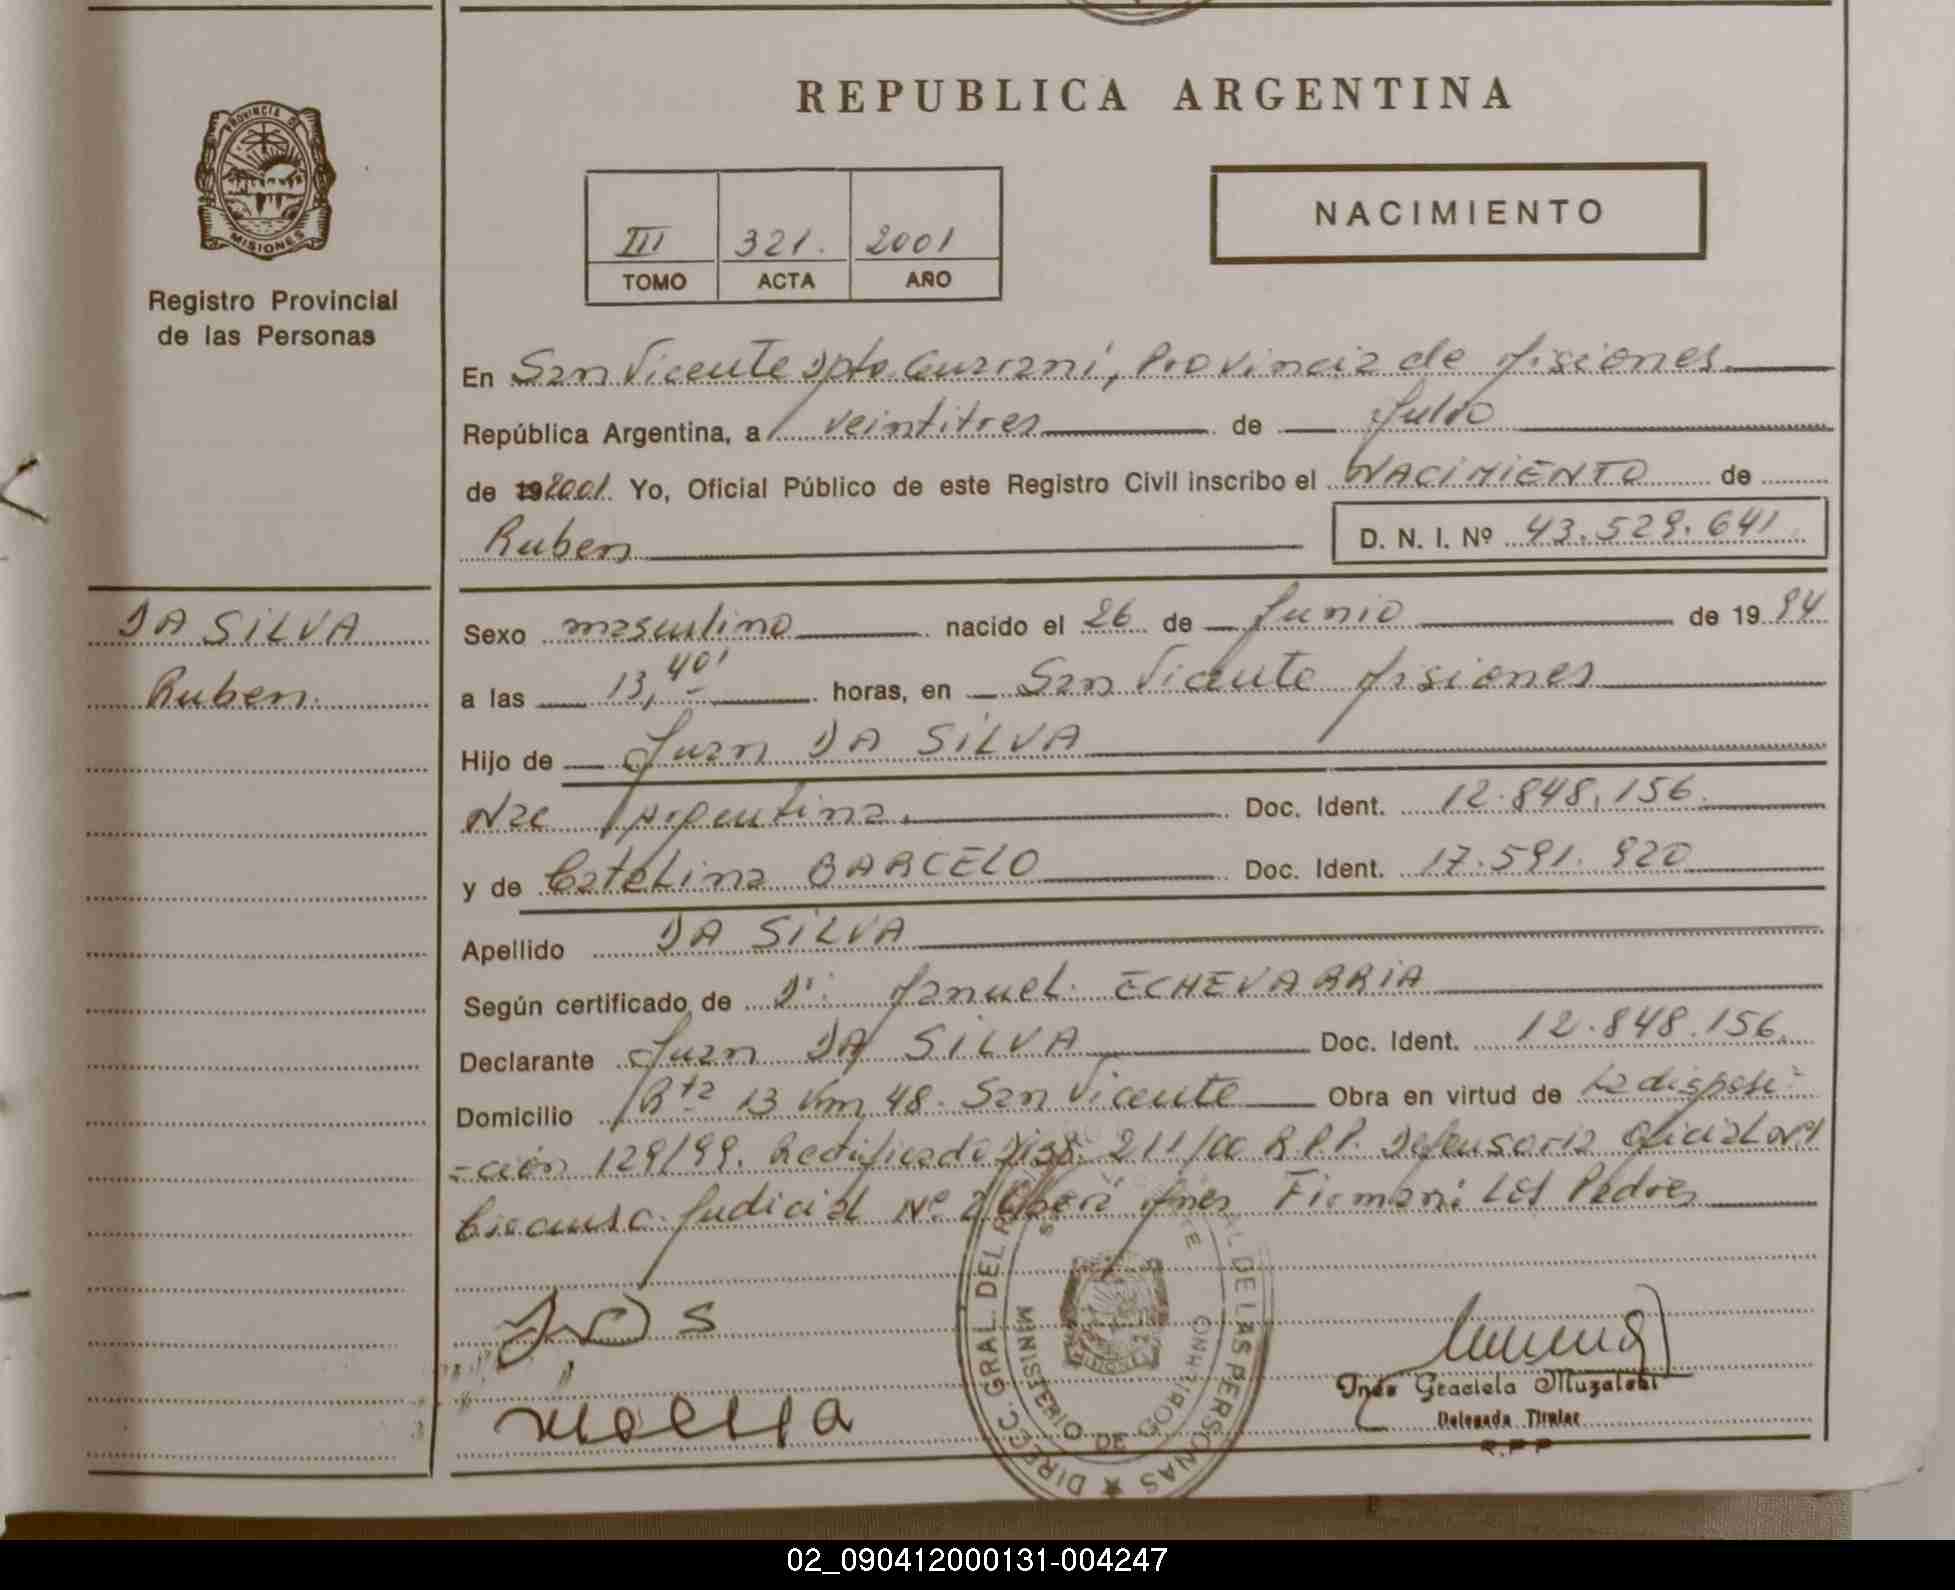 REPUBLICA ARGENTINA
PROVINCIA DE
MISIONES
Registro Provincial
de las Personas
III 321. 2001
TOMO ACTA AÑO
NACIMIENTO
En San Vicente Dpto. Guarani, Provincia de Misiones
República Argentina, a veintitres de Julio
de 192001. Yo, Oficial Público de este Registro Civil inscribo el NACIMIENTO de
Ruben D. N. I. Nº 43.529.641
DA SILVA
Ruben.
Sexo masculino nacido el 26 de Junio de 1994
a las 13,40' horas, en San Vicente Misiones
Hijo de Juan DA SILVA
Nac Argentina. Doc. Ident. 12.848.156.
y de Catelina BARCELO Doc. Ident. 17.591.920
Apellido DA SILVA
Según certificado de Dr: Manuel ECHEVARRIA
Declarante Juan DA SILVA Doc. Ident. 12.848.156.
Domicilio Rta 13 Km 48. San Vicente Obra en virtud de La disposi-
-ción 129/99. Rectificada Disp. 211/00 R.P.P. Defensoria Oficial Nº1
Circunsc. Judicial Nº 2 Oberá Mnes Firman: Los Padres
DIRECC. GRAL. DEL DE LAS PERSONAS
MINISTERIO DE GOBIERNO
Ines Graciela Muzaloski
Delegada Titular
R.P.P
02_090412000131-004247